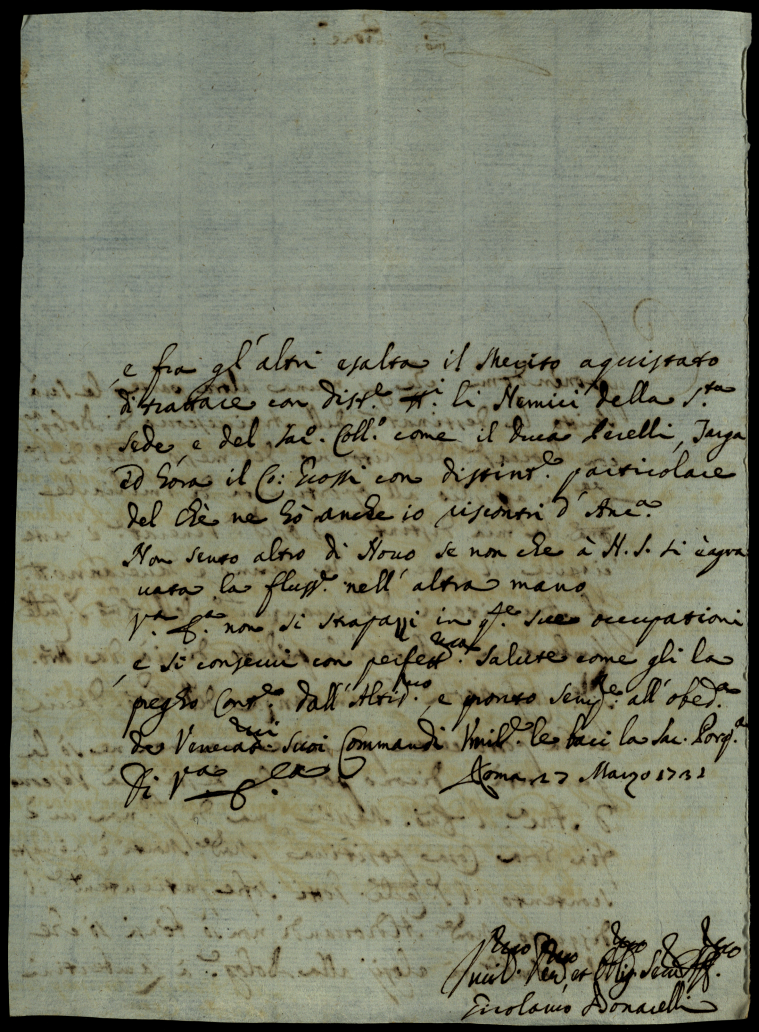 e fra gl'altri esalta il Merito aquistato
di trattare con dist.e li Nemici della S.ta
Sede, e del Sac.o Coll.o come il Duca
ed hora il Co: con distint.e particolare
del che ne hò anche io riscontri d'Anc.a
Non sento altro di Novo se non che à N. S. si è agra
vata la fluss.e nell'altra mano
V.a E.a non si strapazzi in q.e sue occupationi
e si conservi con perfett.ma salute come gli la
prego Cont.e dall'Altiss.mo, e pronto semp.e all'obed.a
de Venerat.mi suoi Commandi Umil.e le baci la Sac. Porp.a
Di V.a E.za Roma 27 Marzo 1731
Umil.mo Dev.mo et Oblig.mo
Girolamo Donarelli